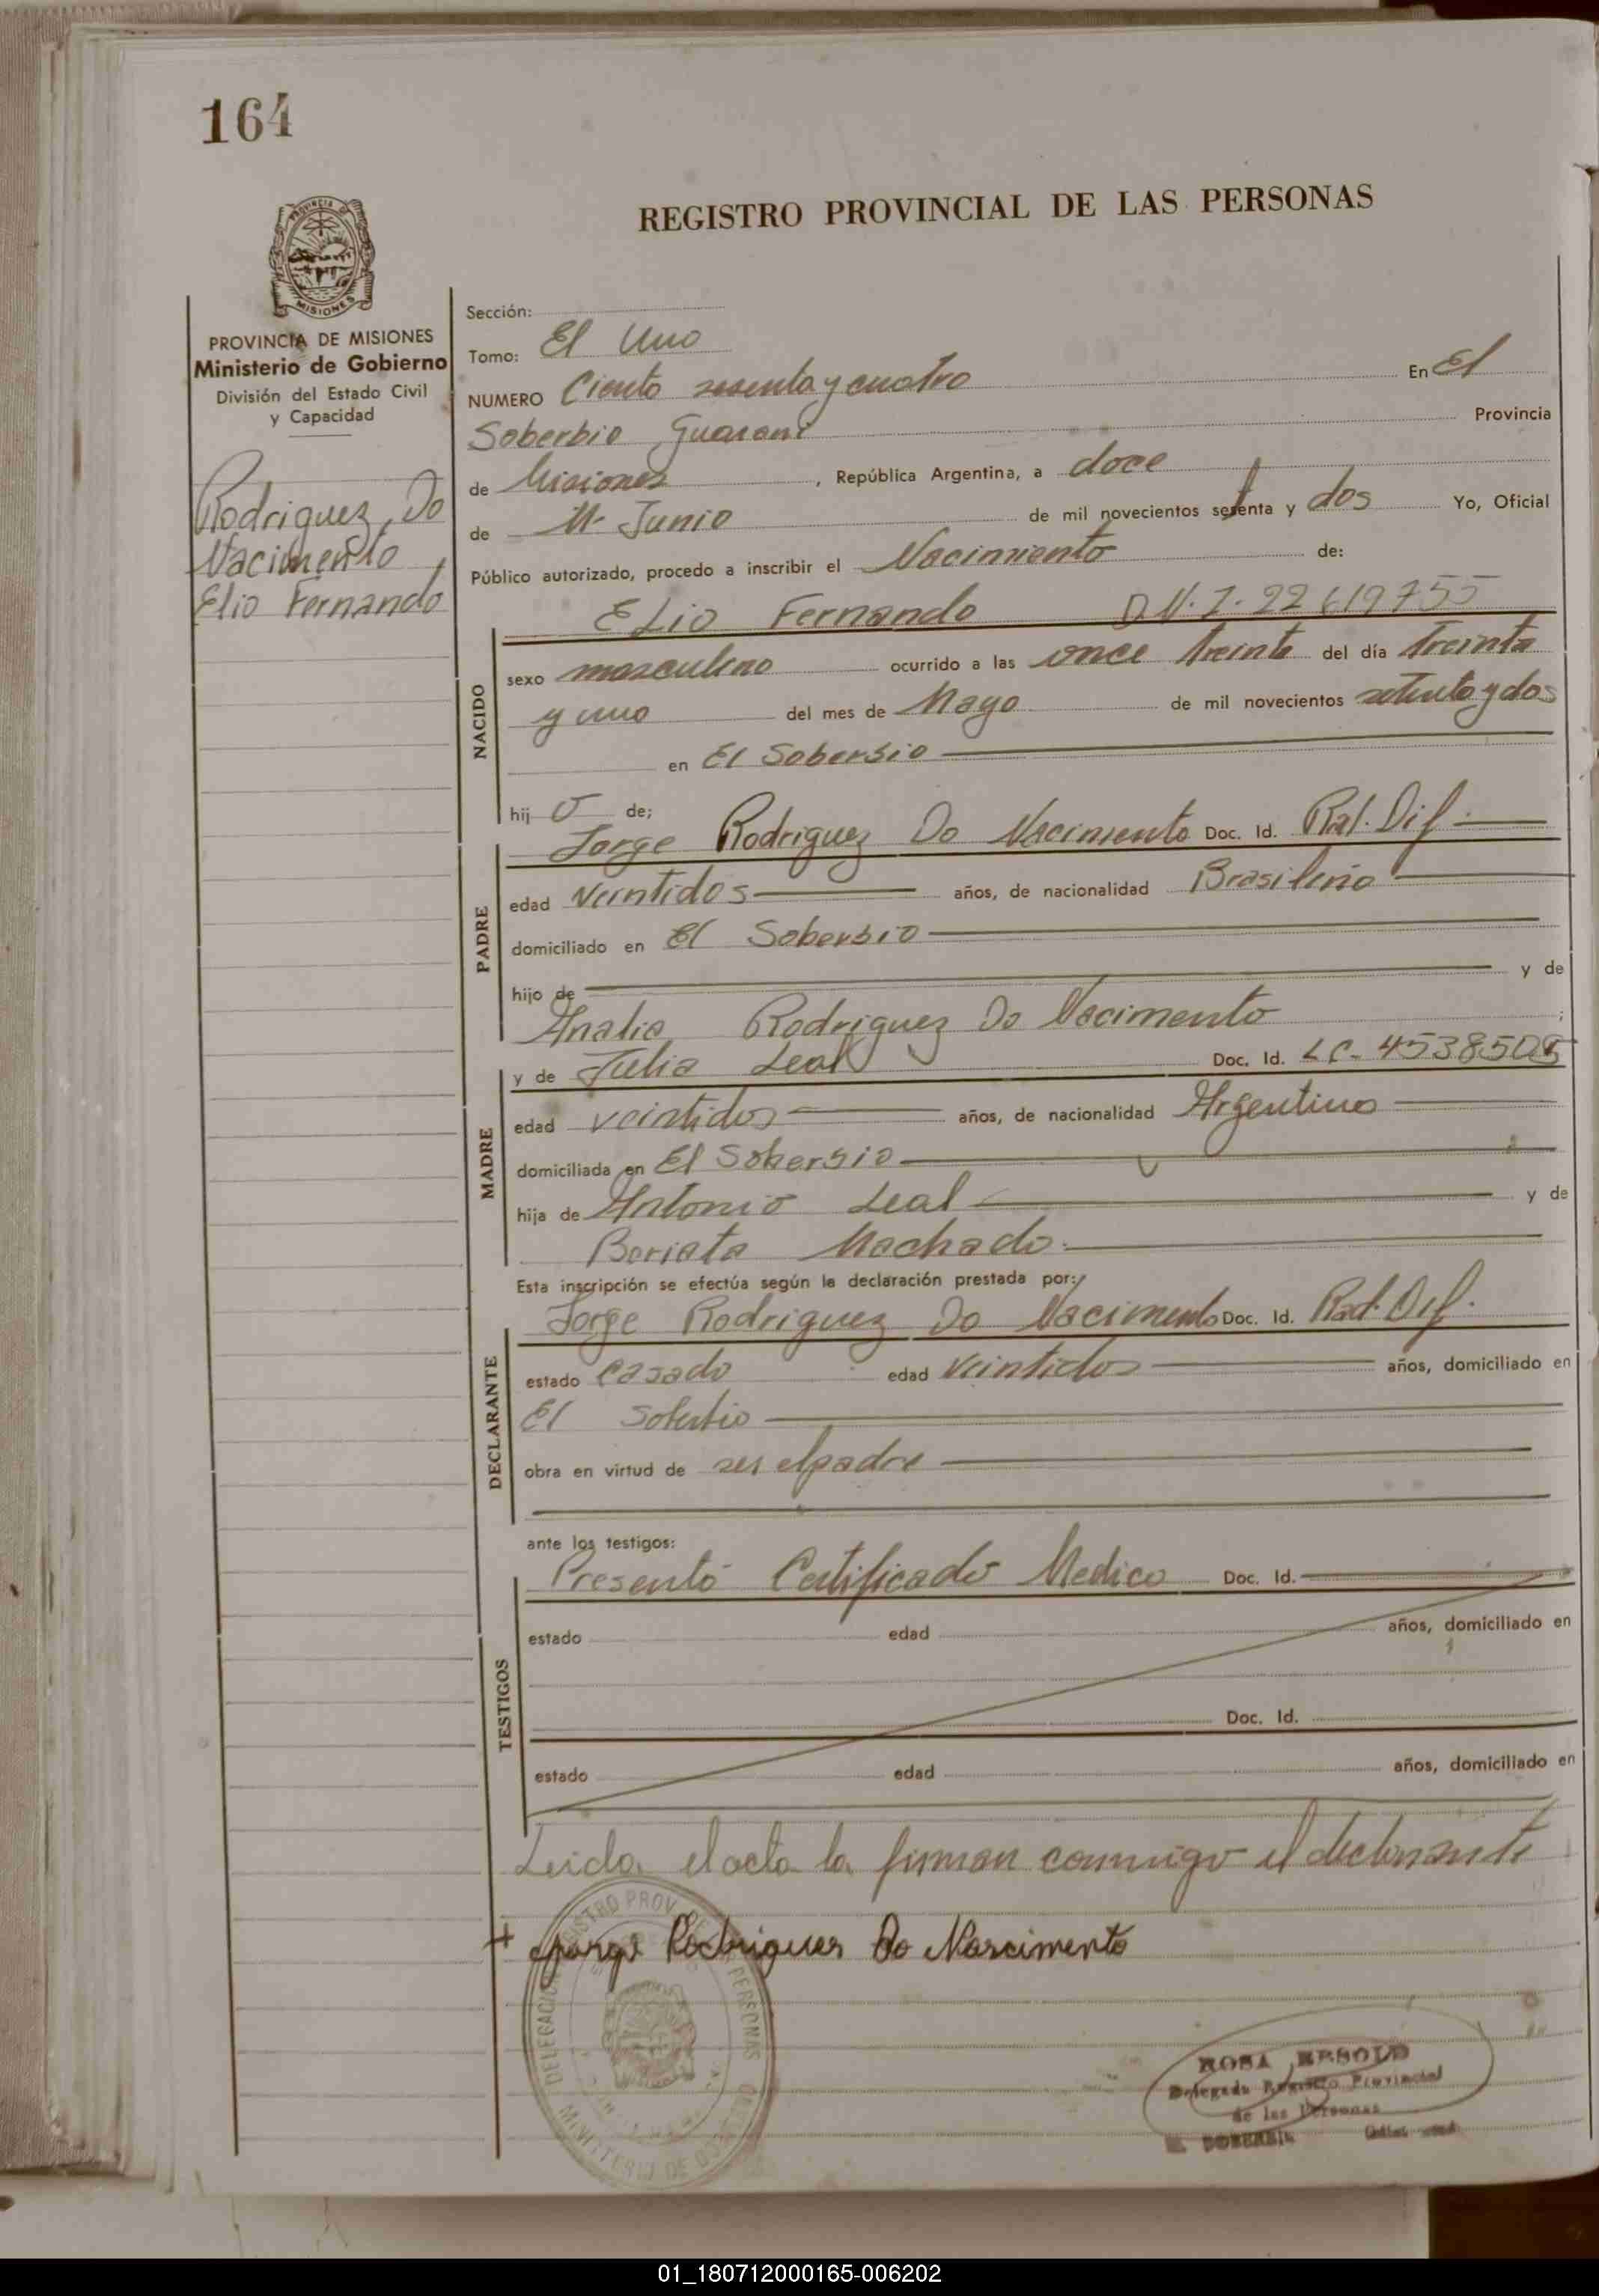 164
REGISTRO PROVINCIAL DE LAS PERSONAS
PROVINCIA DE MISIONES
Ministerio de Gobierno
División del Estado Civil
y Capacidad
Rodriguez, Do
Nacimento
Elio Fernando
Sección:
Tomo: El Uno
NUMERO Ciento sesenta y cuatro En El
Soberbio Guarani Provincia
de Misiones, República Argentina, a doce
de Junio de mil novecientos setenta y dos Yo, Oficial
Público autorizado, procedo a inscribir el Nacimiento de:
Elio Fernando D.N.I. 22619755
NACIDO
sexo masculino ocurrido a las once treinta del día treinta
y uno del mes de Mayo de mil novecientos setenta y dos
en El Soberbio
hijo de;
Jorge Rodriguez Do Nacimento Doc. Id. Rad. Dif.
PADRE
edad veintidos años, de nacionalidad Brasileña
domiciliado en El Soberbio
hijo de y de
Analia Rodriguez Do Nacimento;
y de Julia Leal Doc. Id. LC. 4538505
MADRE
edad veintidos años, de nacionalidad Argentina
domiciliada en El Soberbio
hija de Antonio Leal y de
Machado.
Esta inscripción se efectúa según la declaración prestada por:
Jorge Rodriguez Do Nacimento Doc. Id. Rad. Dif.
DECLARANTE
estado casado edad veintidos años, domiciliado en
El Soberbio
obra en virtud de ser el padre
ante los testigos:
Presentó Certificado Medico Doc. Id.
TESTIGOS
estado edad años, domiciliado en
Doc. Id.
estado edad años, domiciliado en
Leida el acta la firman conmigo el declarante
Jorge Rodrigues Do Nascimento
ROSA
Delegada Registro Provincial
de las Personas
01_180712000165-006202